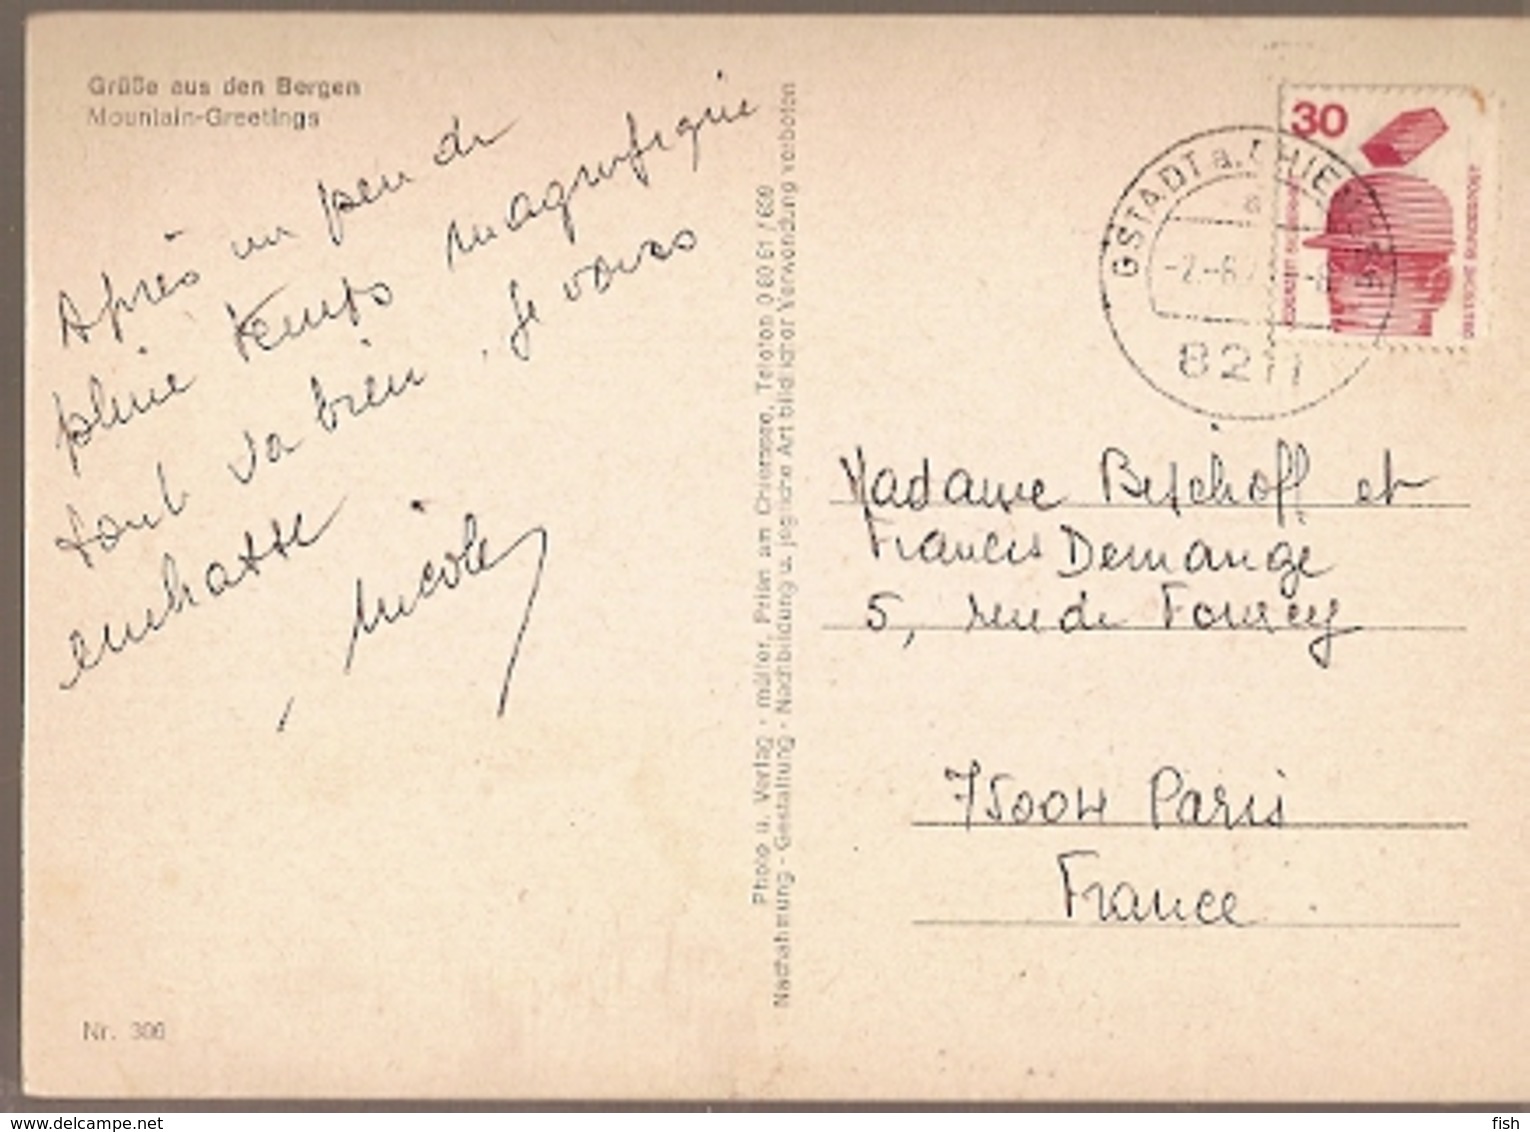 Grüße aus den Bergen
Mountain-Greetings
Après un peu de
pluie temps magnifique
tout va bien. Je vous
embrasse
Nicole
Nr. 306
Photo u. Verlag · müller, Prien am Chiemsee, Telefon 0 80 51 / 609
Nachahmung - Gestaltung - Nachbildung u. jegliche Art bildlicher Verwendung verboten
30
DEUTSCHE BUNDESPOST
GSTADT a. CHIEMSEE
a
8211
Madame Bischoff et
Francis Demange
5, rue de Fourcy
75004 Paris
France
www.delcampe.net
fish